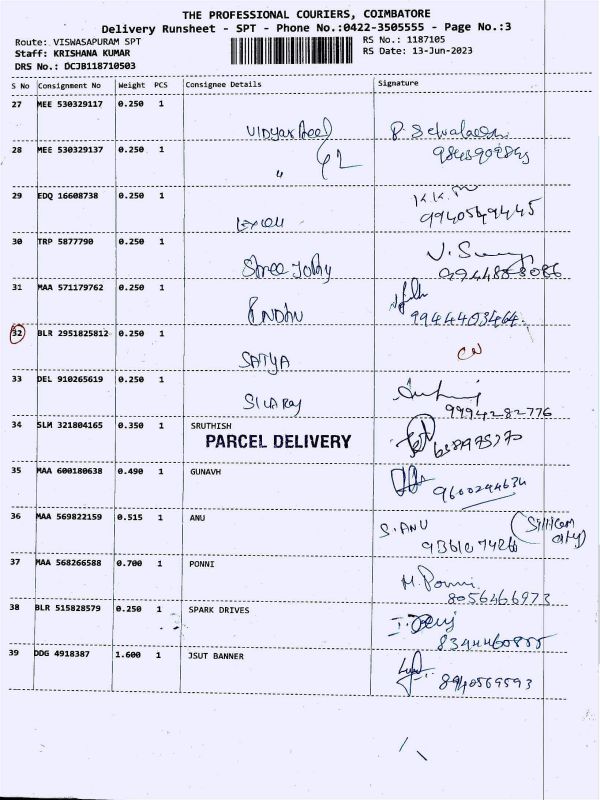 THE PROFESSIONAL COURIERS, COIMBATORE
Delivery Runsheet - SPT - Phone No.:0422-3505555 - Page No.:3
Route: VISWASAPURAM SPT
RS No.: 1187105
Staff: KRISHANA KUMAR
RS Date: 13-Jun-2023
DRS No.: DCJB118710503
S No Consignment No Weight PCS Consignee Details Signature
27 MEE 530329117 0.250 1
28 MEE 530329137 0.250 1
"
29 EDQ 16608738 0.250 1
K.K.M
30 TRP 5877790 0.250 1
31 MAA 571179762 0.250 1
9944403464
32 BLR 2951825812 0.250 1
SATYA
33 DEL 910265619 0.250 1
9994282776
34 SLM 321804165 0.350 1 SRUTHISH
PARCEL DELIVERY
35 MAA 600180638 0.490 1 GUNAVH
9600294634
36 MAA 569822159 0.515 1 ANU
S. ANU
37 MAA 568266588 0.700 1 PONNI
M. Ponni
8056466973
38 BLR 515828579 0.250 1 SPARK DRIVES
39 DDG 4918387 1.600 1 JSUT BANNER
8940569593